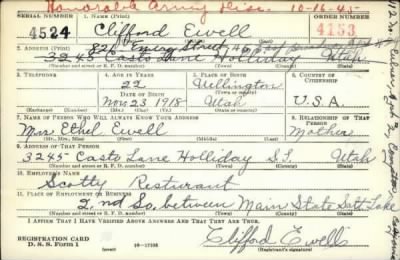 Honorable Army Disc. 10-16-45
SERIAL NUMBER
4524
Clifford Ewell
ORDER NUMBER
4153
2. ADDRESS (Print)
826 Emery Street
3245 Casto Lane Holliday Utah
(Number and street or R. F. D. number) (Town) (County) (State)
3. TELEPHONE
4. AGE IN YEARS
22
DATE OF BIRTH
Nov 23 1918
5. PLACE OF BIRTH
Wellington
Utah
6. COUNTRY OF CITIZENSHIP
U.S.A.
7. NAME OF PERSON WHO WILL ALWAYS KNOW YOUR ADDRESS
Mrs Ethel Ewell
8. RELATIONSHIP OF THAT PERSON
Mother
9. ADDRESS OF THAT PERSON
3245 Casto Lane Holliday S.L. Utah
(Number and street or R. F. D. number) (Town) (County) (State)
10. EMPLOYER'S NAME
Scotty Resturant
11. PLACE OF EMPLOYMENT OR BUSINESS
2, nd So. between Main State Salt Lake
(Number and street or R. F. D. number) (Town) (County) (State)
I AFFIRM THAT I HAVE VERIFIED ABOVE ANSWERS AND THAT THEY ARE TRUE.
REGISTRATION CARD
D. S. S. Form 1
Clifford Ewell
(Registrant's signature)